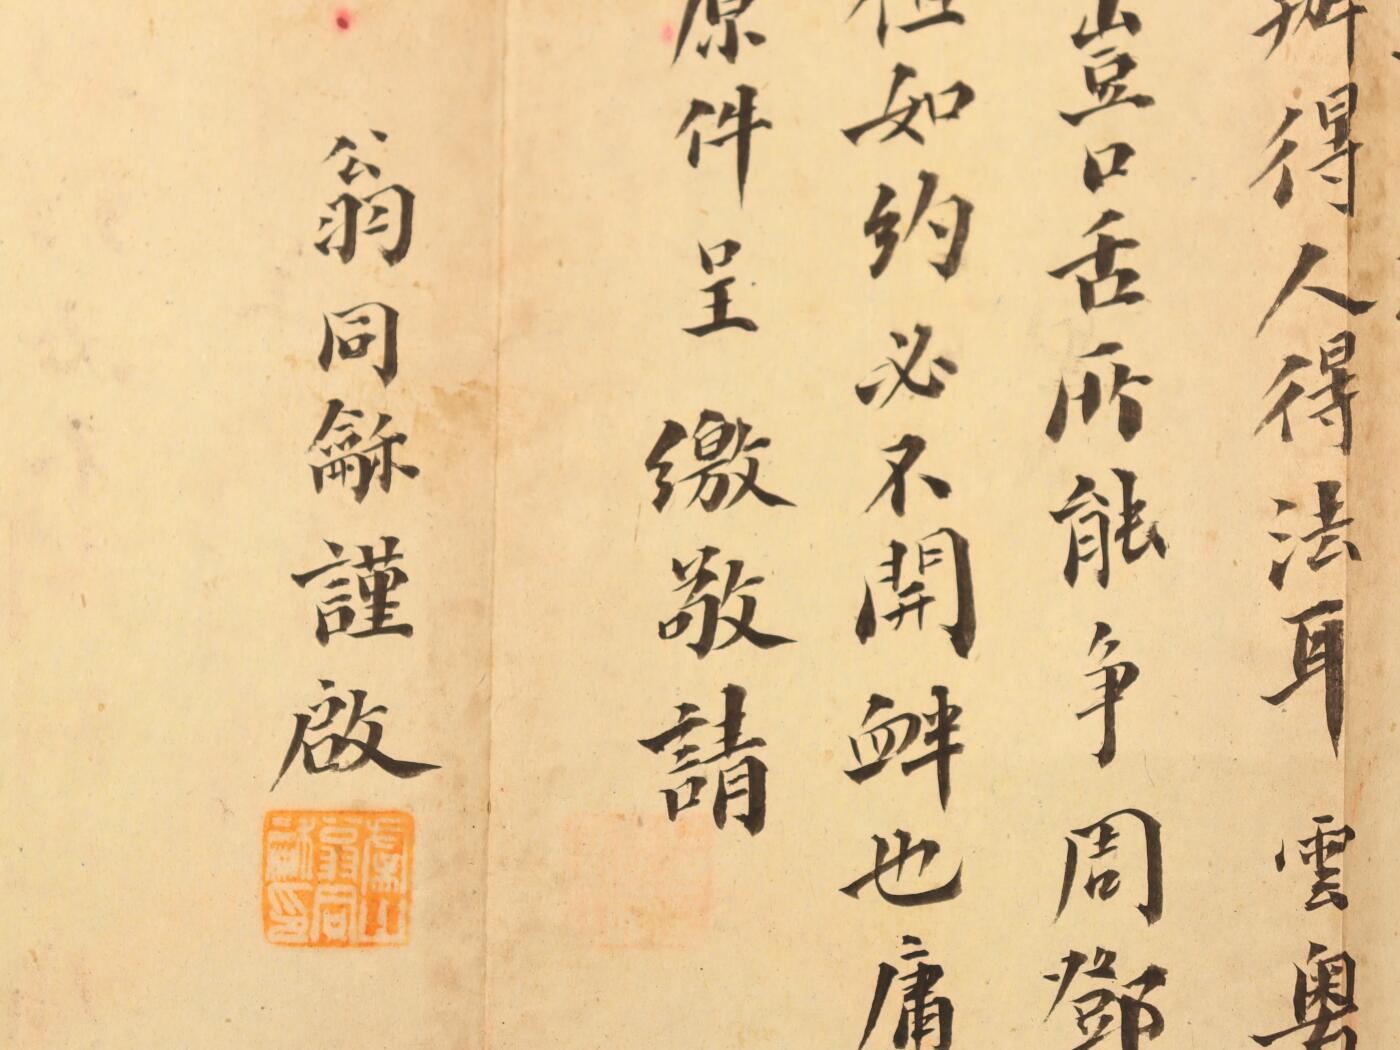 得人得法耳雲粵
豈口舌所能爭周鄧
但如約必不開衅也庸
原件呈繳敬請
翁同龢謹啟
虞山翁同龢印